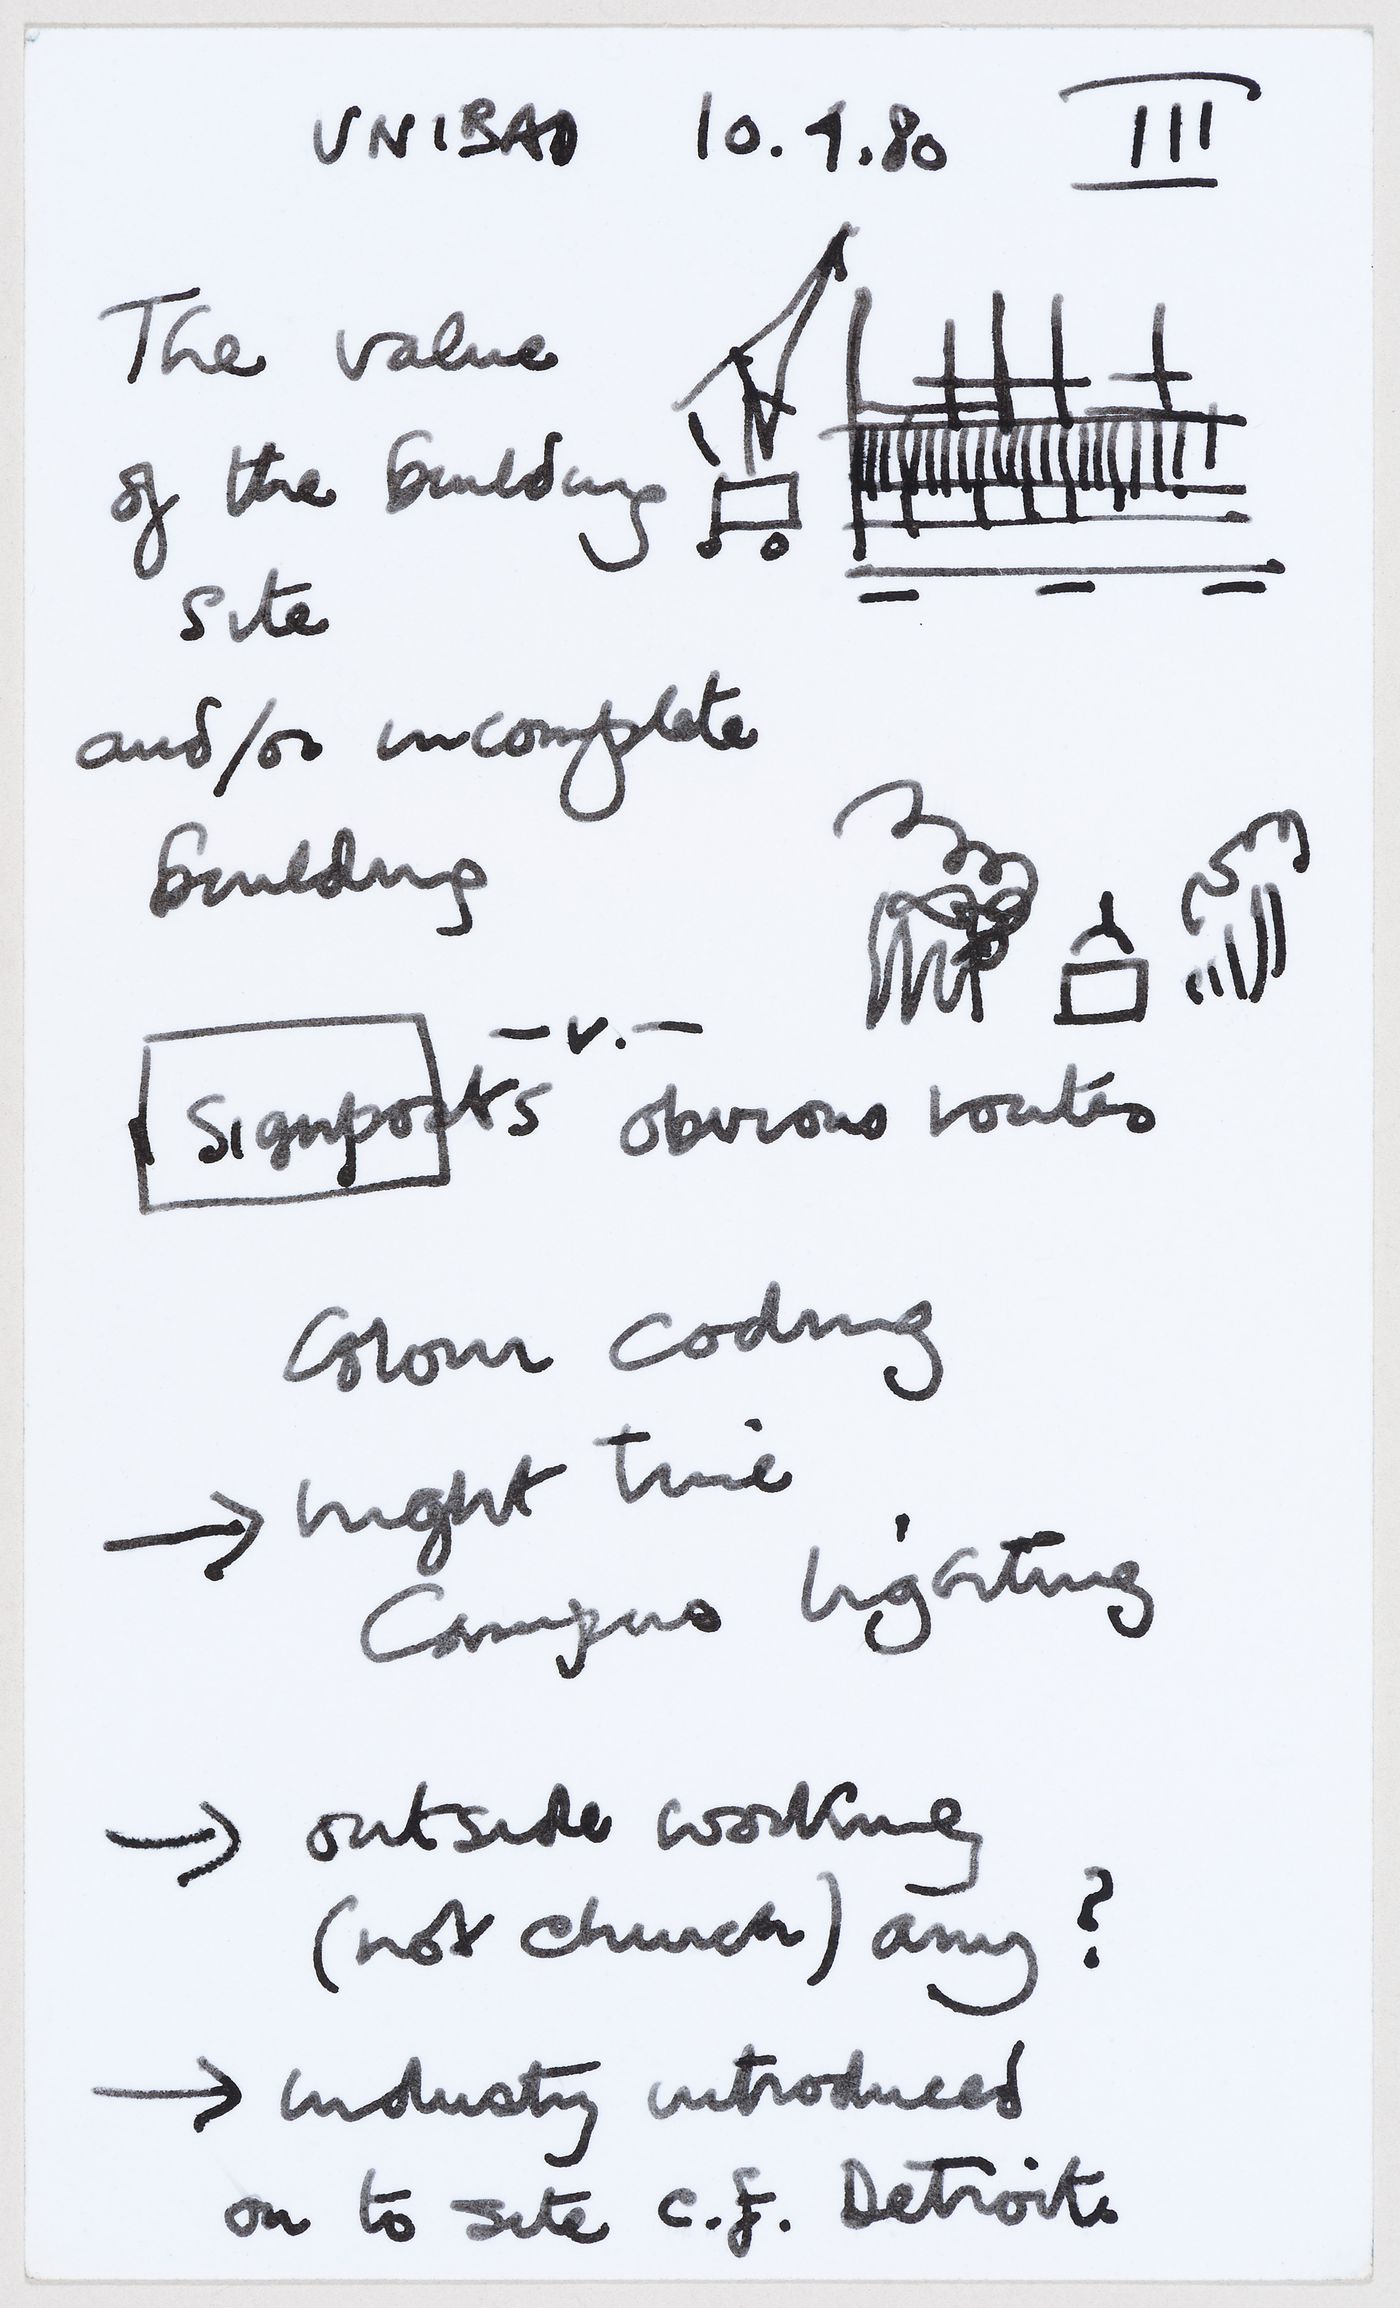 UNIBAD 10.9.80 III
The value
of the building
site
and/or incomplete
building
Signposts - v. - obvious routes
Colour coding
→ night time
Campus lighting
→ outside working
(not church) any?
→ industry introduced
on to site c.f. Detroit.